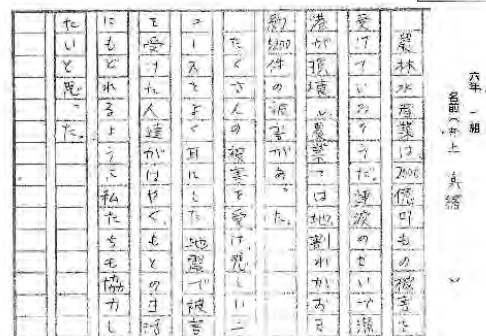 六年 一組
名前(井上
農林水産業は、億円もの被害を
受けているそうだ。津波のせいで漁
港が、農業では地割れがおき
約件の被害があった。
たくさんの被害を受け、しいニ
ュースをよく耳にした。地震で被害
を受けた人達がはやく、もとの生活
にもどれるように私たちも協力し
たいと思った。